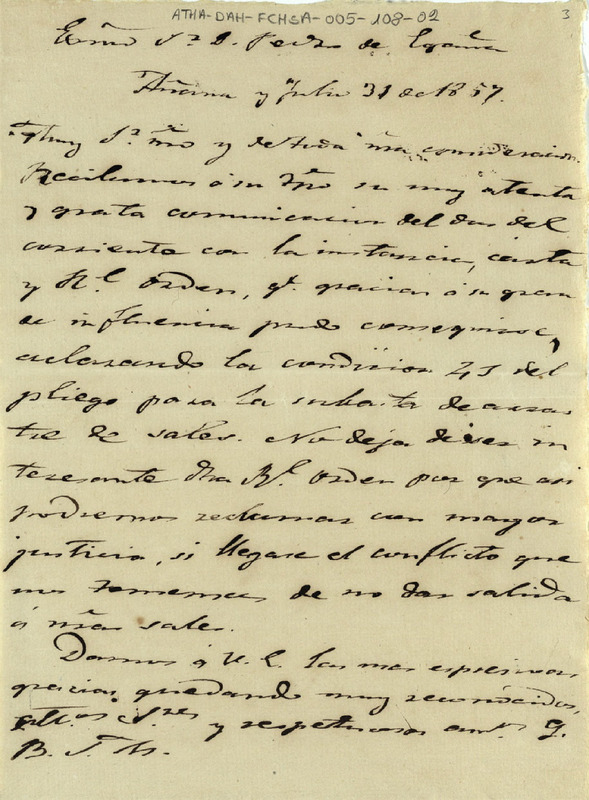 ATHA-DAH-FCHSA-005-108-02
3
Exmo Sr. D. Pedro de Egaña
Añana y Julio 31 de 1857.
Muy Sr. mío y de toda mía consideracion.
Recibimos á su tpo su muy atenta
y grata comunicacion del dos del
corriente con la instancia, carta
y Rl. Orden, qe. gracias á su gran
de influencia pudo conseguirse,
aclarando la condicion 45 del
pliego para la subasta de arras
tre de sales. No deja de ser in
teresante dha Rl. Orden por que asi
podremos reclamar con mayor
justicia, si llegase el conflicto que
nos tememos de no dar salida
á nras sales.
Damos á V. E. las mas espresivas
gracias, quedando muy reconocidos,
attos. Sres. y respetuosos Q.
B. S. M.